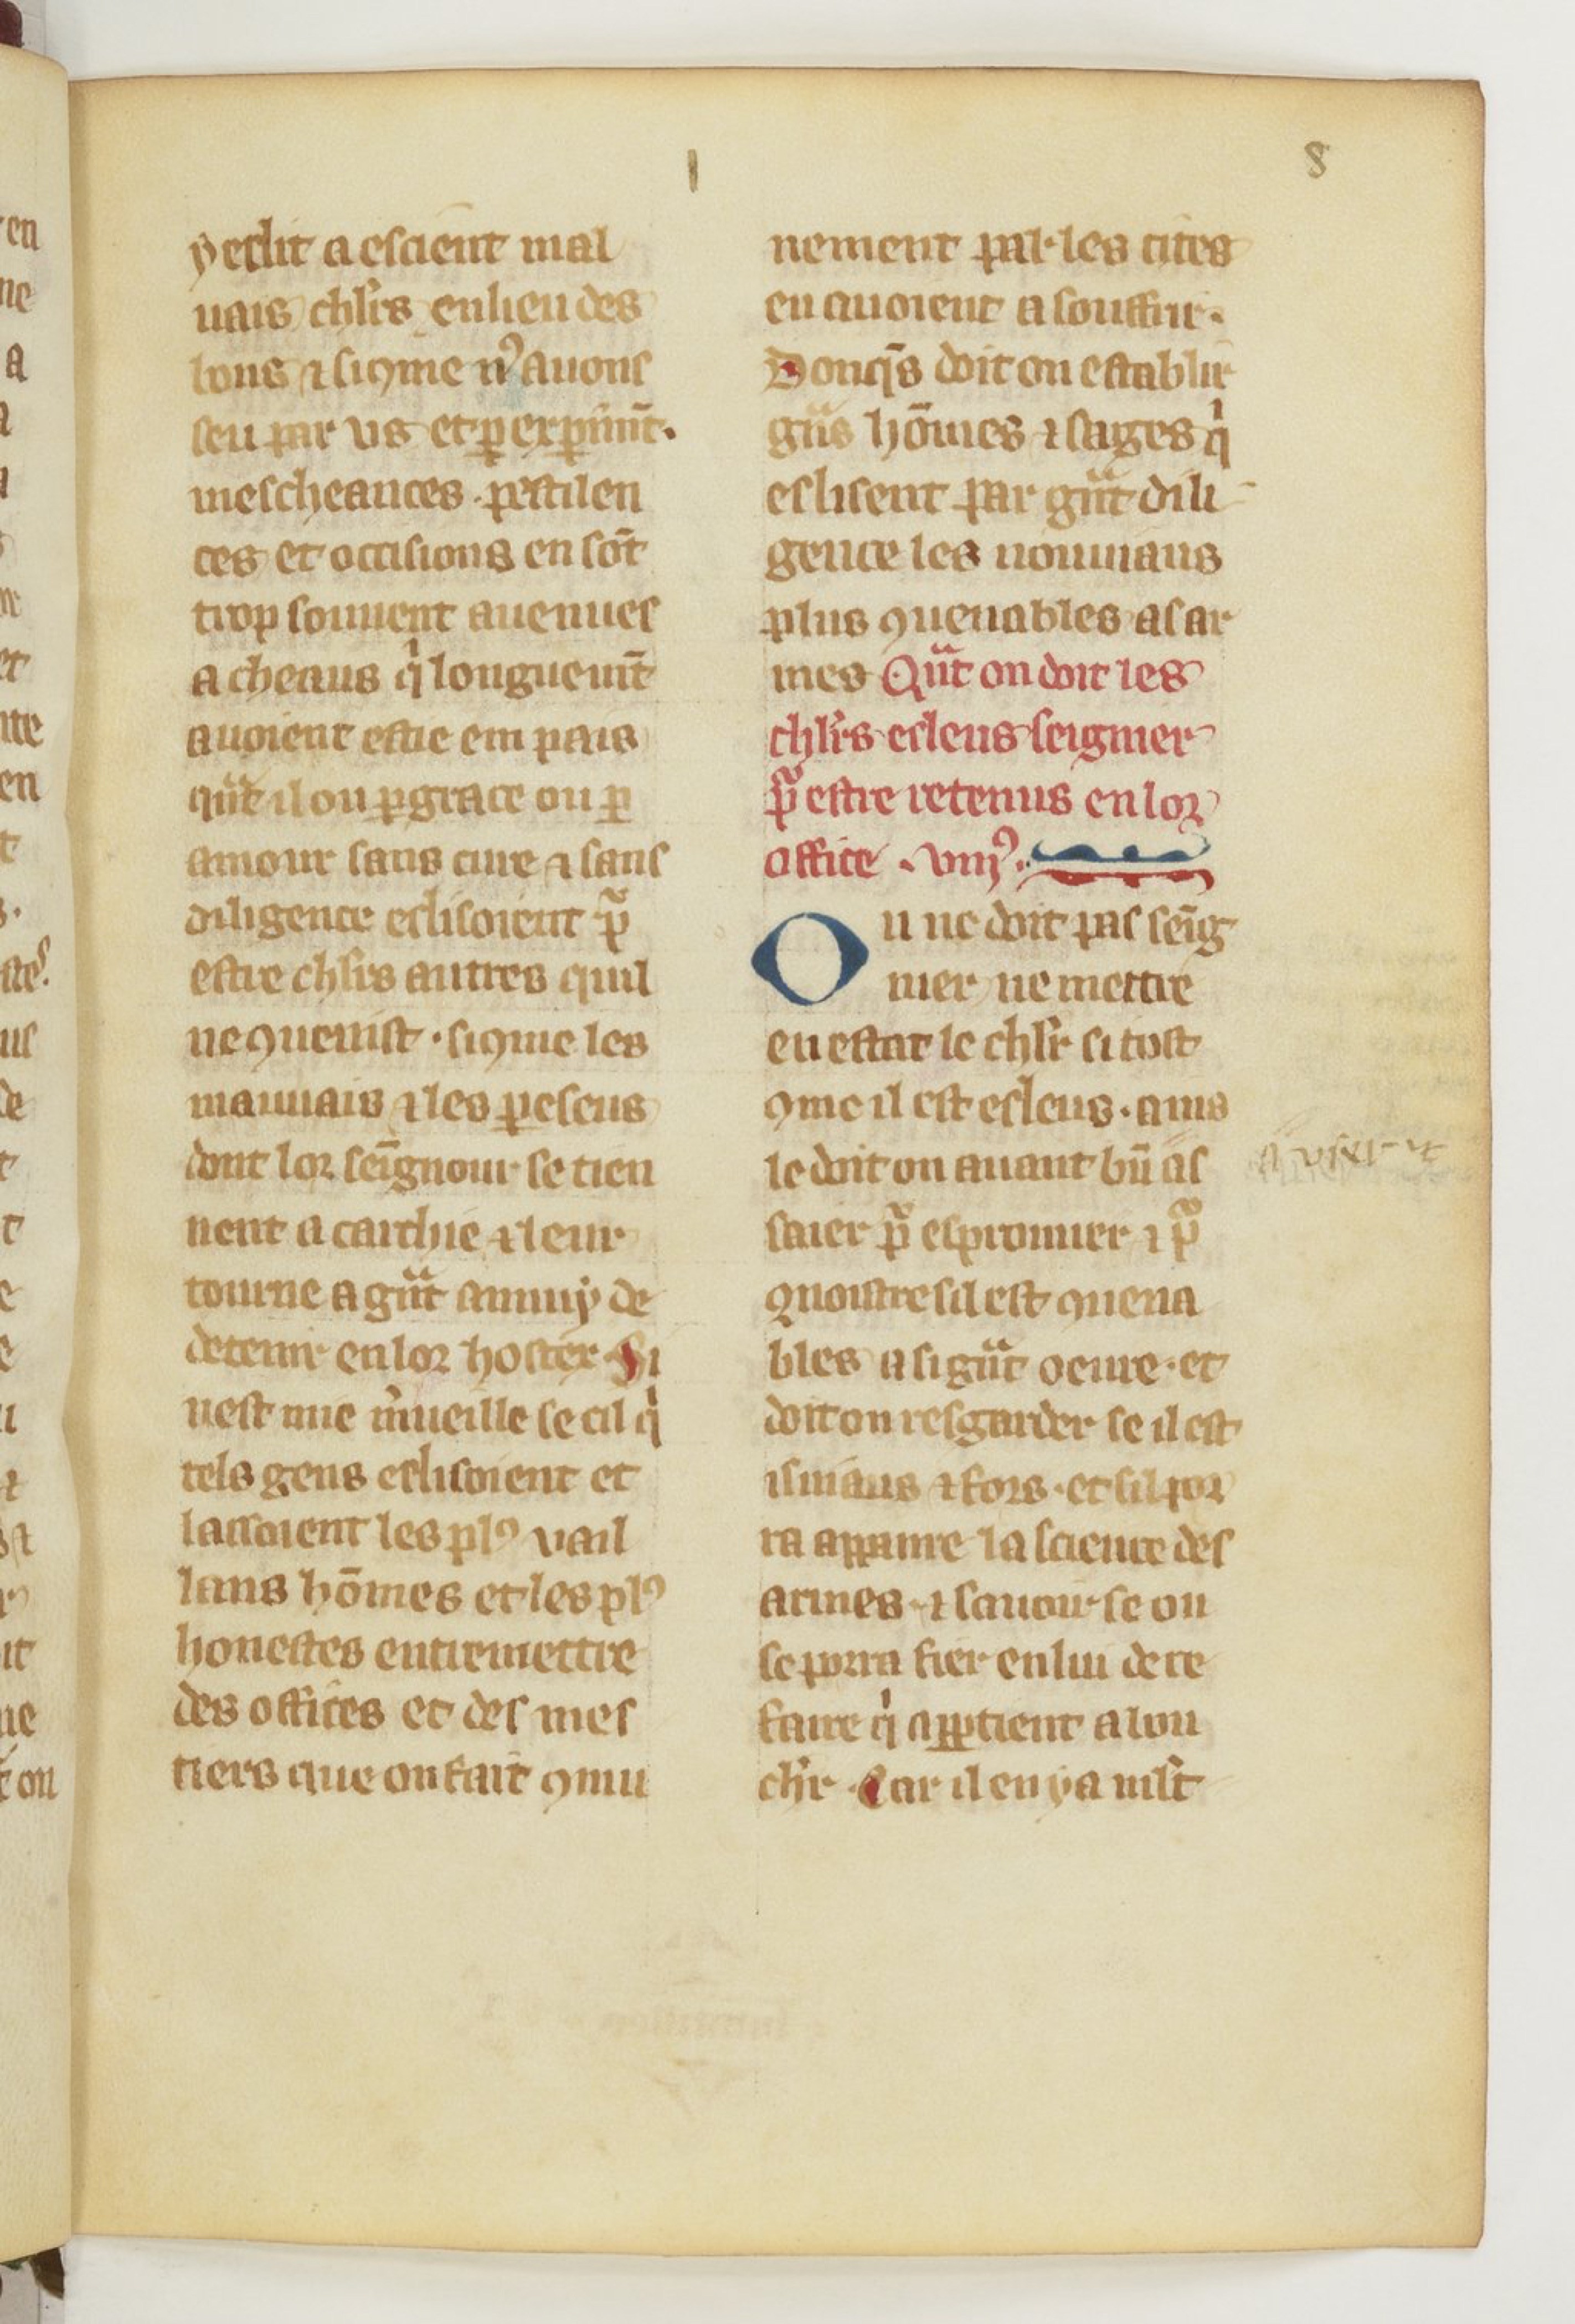 I
8
y eslit a escient mal
uais chlrs en lieu des
bons ⁊ si ꝯme nꝰ auons
seu par us et ꝑ expimt̄.
mescheances . pestilen
ces et occisions en sōt
trop souuent auenues
a cheaus qi longuemt̄
auoient este em pais
qᵃnt il ou ꝑ grace ou ꝑ
amour sans cure ⁊ sans
diligence eslisoient pᵃ
estre chlrs autres quil
ne ꝯuenist . si ꝯme les
mauuais ⁊ les ꝑeseus
dont lor sēignour se tien
nent a carchie ⁊ leur
tourne a gᵃnt annuy de
detenir en lor hostex . Si
nest mie mͥueille se cil qi
tels gens eslisoient et
laissoient les plꝰ vail
lans hōmes et les plꝰ
honestes entremettre
des offices et des mes
tiers que on fait ꝯmu
nement par les cites
en auoient a souffrir.
Donq̄s doit on establir
gᵃns hōmes ⁊ sages qi
eslisent par gᵃnt dili
gence les nouuiaus
plus ꝯuenables as ar
mes Qᵃnt on doit les
chlrs esleus seignier
pᵃ estre retenus en lor
office . viiiꝰ.
On ne doit pas sēig
nier ne mettre
en estat le chlr si tost
ꝯme il est esleus . ains
le doit on auant bn̄ as
saier pᵃ esprouuer ⁊ pᵃ
ꝯnoistre sil est ꝯuena
bles a si gᵃnt oeure . et
doit on resgarder se il est
isniaus ⁊ fors . et sil por
ra appanre la science des
armes . ⁊ sauoir se on
se porra fier en lui de ce
faire qi apptient a bon
chr . Car il en y a mlt